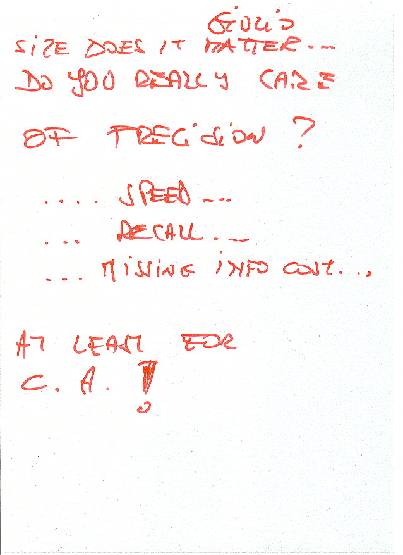 Giulio
SIZE DOES IT MATTER...
DO YOU REALLY CARE
OF PRECISION ?
.... SPEED...
... RECALL...
... MISSING INFO COST...
AT LEAST FOR
C. A. !